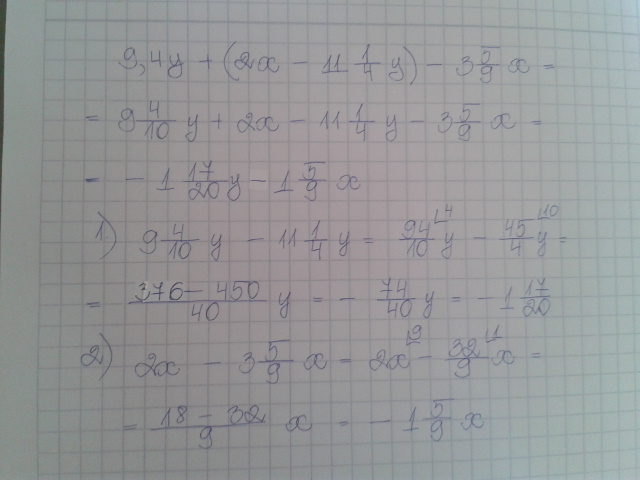 9,4y + (2x - 11 1/4 y) - 3 5/9 x =
= 9 4/10 y + 2x - 11 1/4 y - 3 5/9 x =
= - 1 17/20 y - 1 5/9 x
1) 9 4/10 y - 11 1/4 y = 94/10 y ⌊4 - 45/4 y ⌊10 =
= 376 - 450/40 y = - 74/40 y = - 1 17/20
2) 2x - 3 5/9 x = 2x ⌊9 - 32/9 x ⌊1 =
= 18 - 32/9 x = - 1 5/9 x